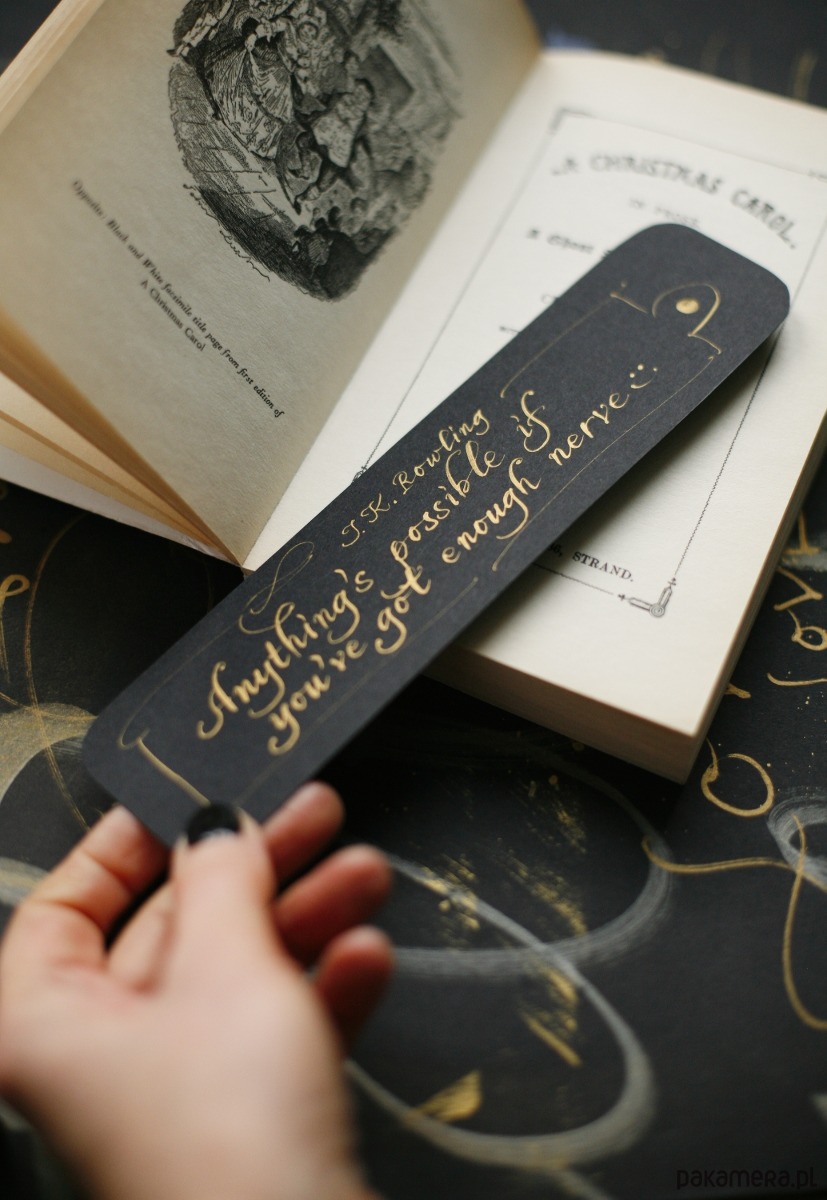 Opposite: Black and White facsimile title page from first edition of
A Christmas Carol
A CHRISTMAS CAROL.
IN PROSE
A Ghost
STRAND.
J.K. Rowling
Anything's possible if
you've got enough nerve.
pakamera.pl